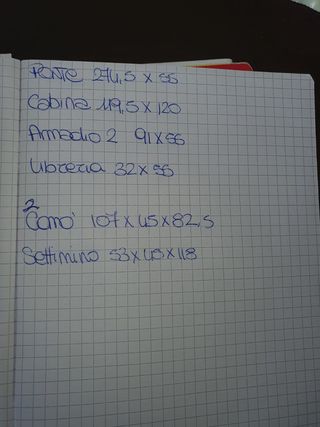 PONTE 274,5 X 55
Cabina 119,5 X 120
Armadio 2 91 X 55
Libreria 32 X 55
2
Comò 107 X 45 X 82,5
Settimino 53 X 45 X 118